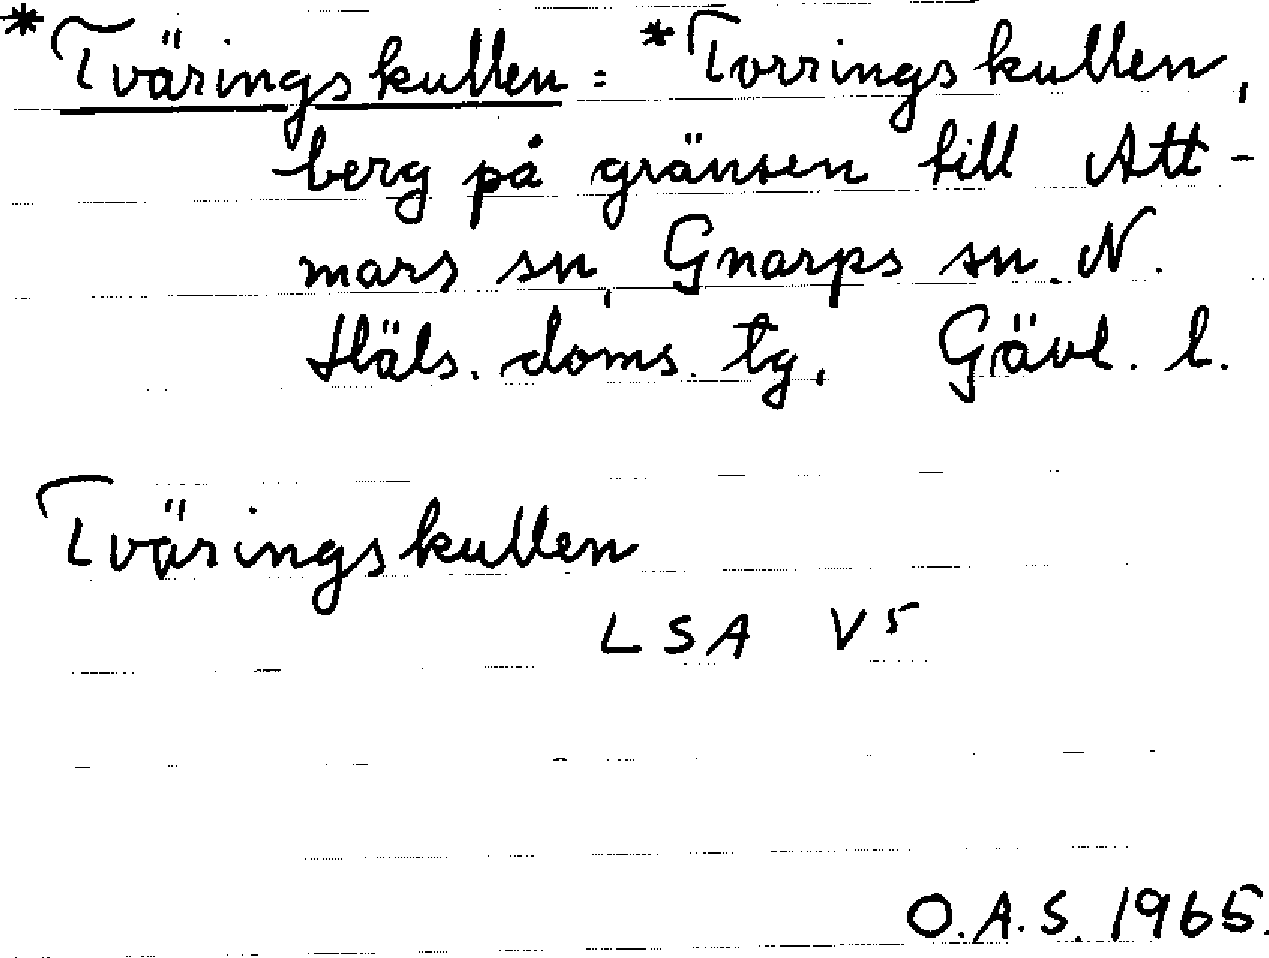 *Tväringskullen = *Torringskullen,
berg på gränsen till Att-
mars sn, Gnarps sn. N.
Häls. doms. tg, Gävl. l.
Tväringskullen
LSA V5
O.A.S. 1965.